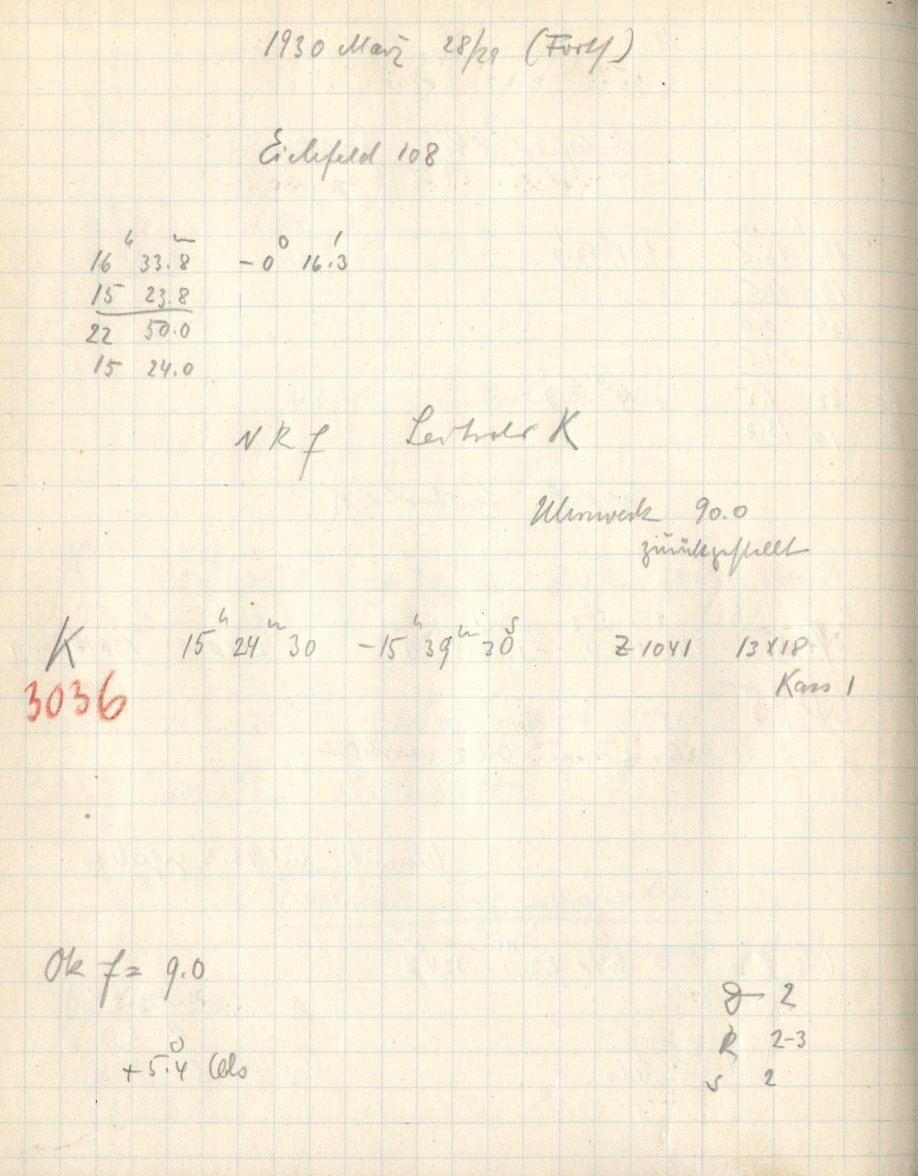 1930 März 28/29 (Forts)
Eichfeld 108
16h 33m.8 -0° 16'.3
15 23.8
22 50.0
15 24.0
NRf K
Uhrwerk 90.0
zurückgestellt
K 15h 24m 30 -15h 39m 30s Z 1041 13x18
3036 Kass 1
Ok f = 9.0
2
+5°.4 Cels R 2-3
s 2